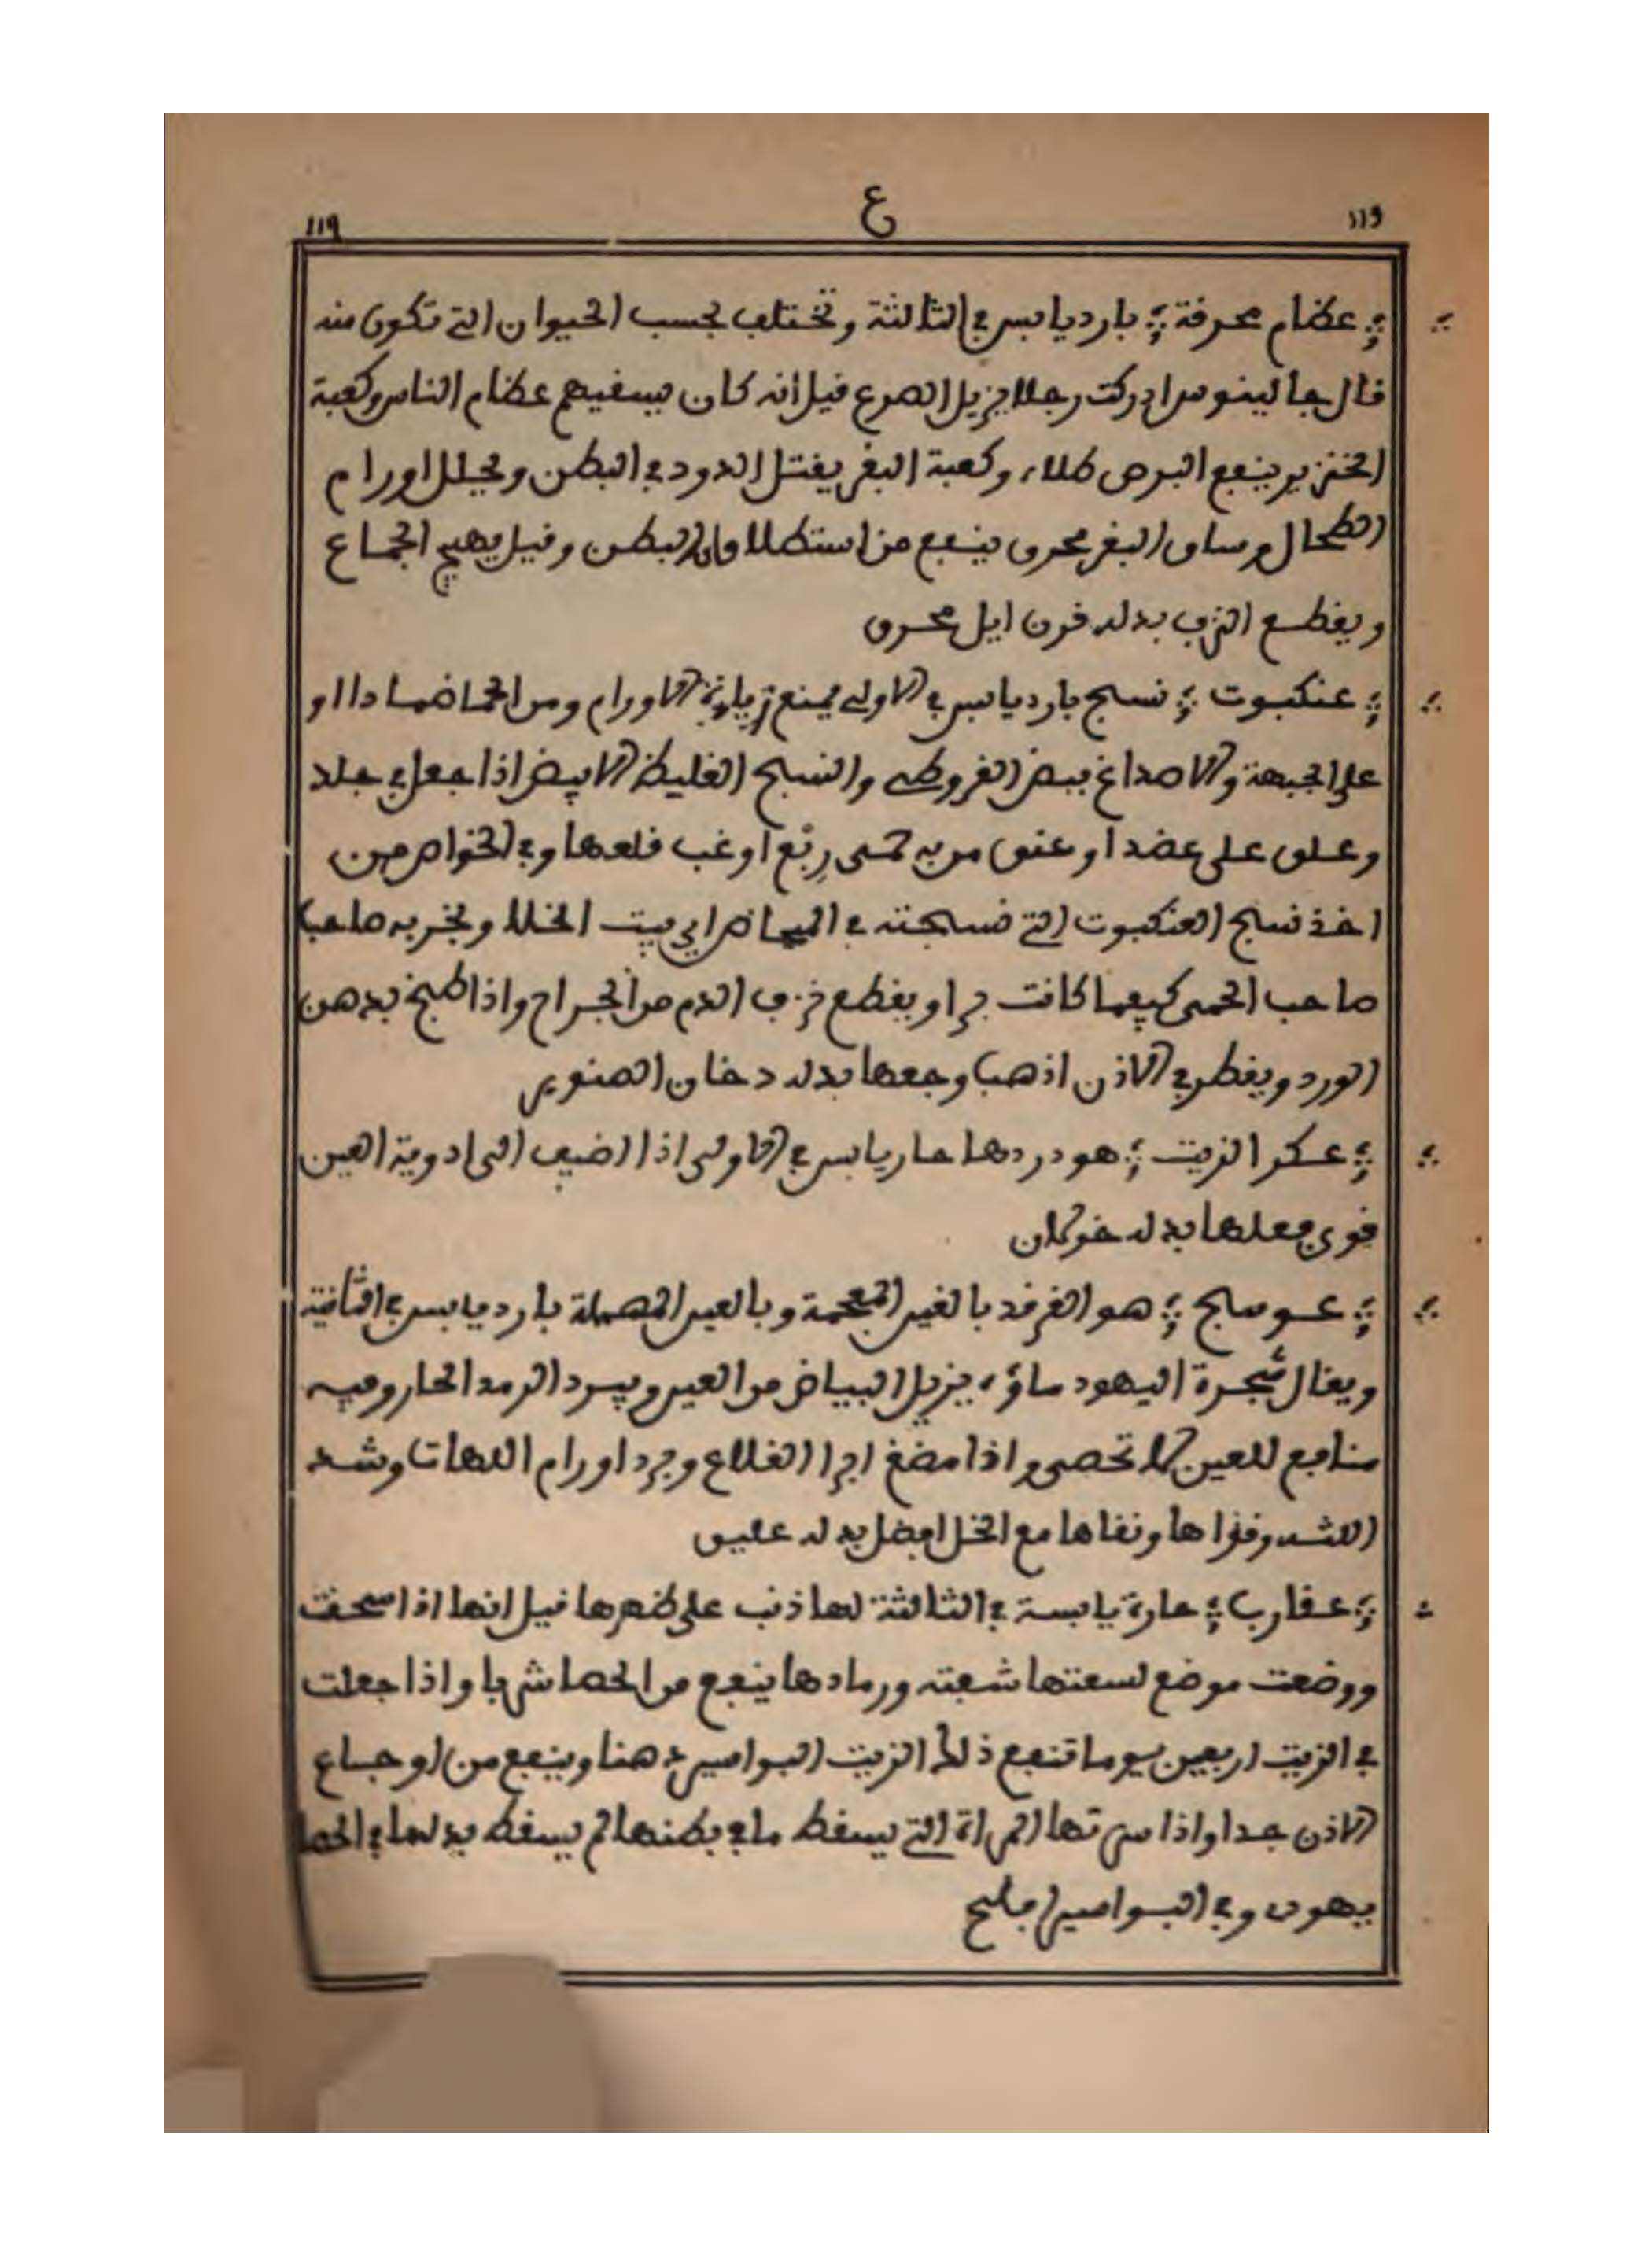 119 ع 113
عظام محرقة بارد يابس في الثالثة وتختلف بحسب الحيوان التي تكون منه
قال جالينوس ادركت رجلا يزيل الصرع قيل أنه كان يسقيهم عظام الناس وكعبة
الخنزير ينفع البرص طلاء وكعبة البقر يقتل الدود في البطن ويحلل اورام
الطحال وساق البقر محرق ينفع من استطلاق البطن وقيل يهيج الجماع
ويقطع النزف بدله قرن ايل محرق
عنكبوت نسج بارد يابس في الاولى يمنع زيادة الاورام ومن الحما ضمادا او
على الجبهة والاصداغ ببعض القروطي والنسج الغليظ الابيض اذا جعل في جلد
وعلق على عضد او عنق من به حمى ربع او غب قلعها وفي الخواص من
اخذ نسج العنكبوت التي نسجته في البياض اي بيت الخلا وبخر به صاحبا
صاحب الحمى كيفما كانت برا ويقطع نزف الدم من الجراح واذا طبخ بدهن
الورد ويقطر في الاذن اذهب وجعها بدله دخان الصنوبر
عكر الزيت هو دردها حار يابس في الاولى اذا اضيف الى ادوية العين
قوى فعلها بدله خولان
عوسج هو الغرقد بالغين المعجمة وبالعين المهملة بارد يابس في الثانية
ويقال شجرة اليهود ماؤه يزيل البياض من العين ويبرد الرمد الحار وفيه
منافع للعين لا تحصى واذا مضغ ابرا القلاع وبرد اورام اللهات وشد
اللثه وقواها ونقاها مع الخل افضل بدله عليق
عقارب حارة يابسة في الثالثة لها ذنب على ظهرها قيل انها اذا سحقت
ووضعت موضع لسعتها شفته ورمادها ينفع من الحصا شربا واذا جعلت
في الزيت اربعين يوما تنفع ذلك الزيت البواسير دهنا وينفع من اوجاع
الاذن جدا واذا سرتها المراة التي يسقط ما في بطنها لم يسقط بدلها في الحصا
يهود وفي البواسير